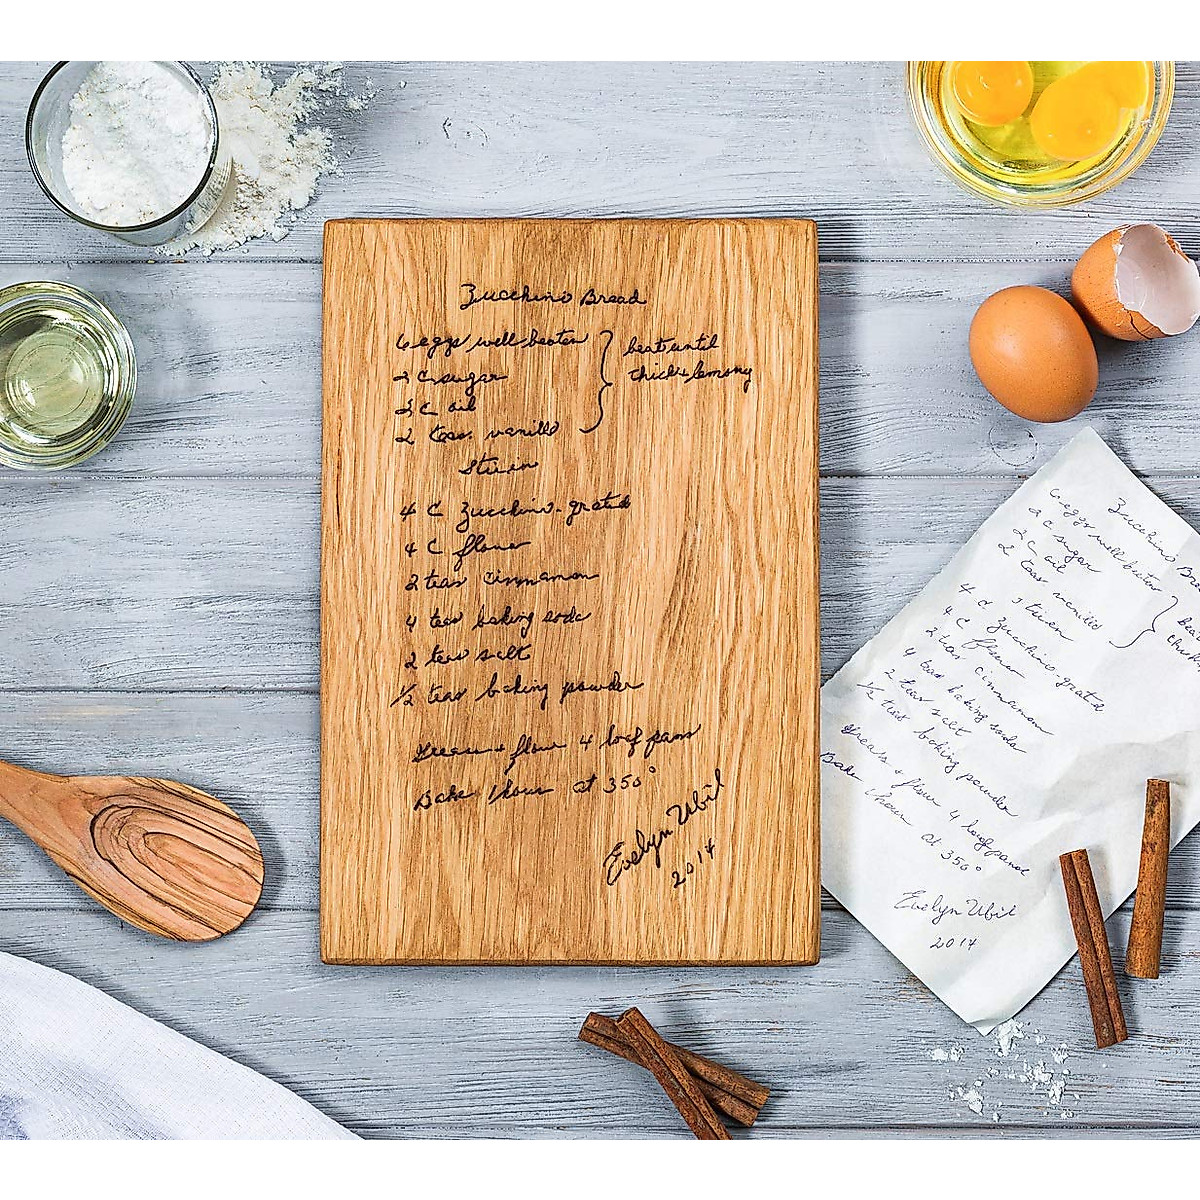 Zucchini Bread
6 eggs well beaten
2 C sugar
2 C oil
2 teas vanilla
beat until
thick & lemony
Stir in
4 C Zucchini - grated
4 C flour
2 teas cinnamon
4 teas baking soda
2 teas salt
1/2 teas baking powder
Grease + flour 4 loaf pans
Bake 1 hour at 350°
Evelyn Ubil
2014
Zucchini Brea
6 eggs well beaten
2 C sugar
2 C oil
2 teas vanilla
Beat
thick
Stir in
4 C Zucchini - grated
4 C flour
2 teas cinnamon
4 teas baking soda
2 teas salt
1/2 teas baking powder
Grease + flour 4 loaf pans
Bake 1 hour at 350°
Evelyn Ubil
2014